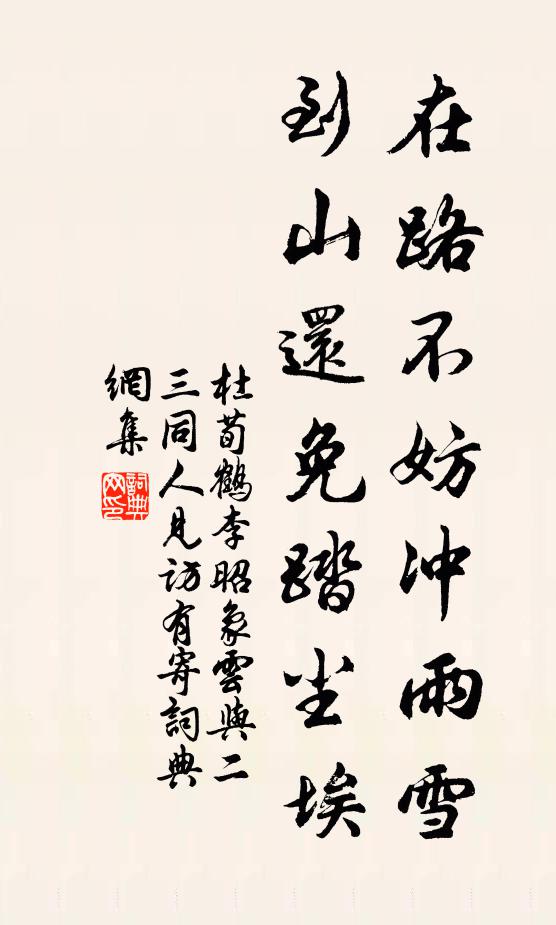 在路不妨冲雨雪
到山還免踏尘埃
杜荀鶴李昭象雲與二
三同人見訪有寄詞典
網集
詞典
网印